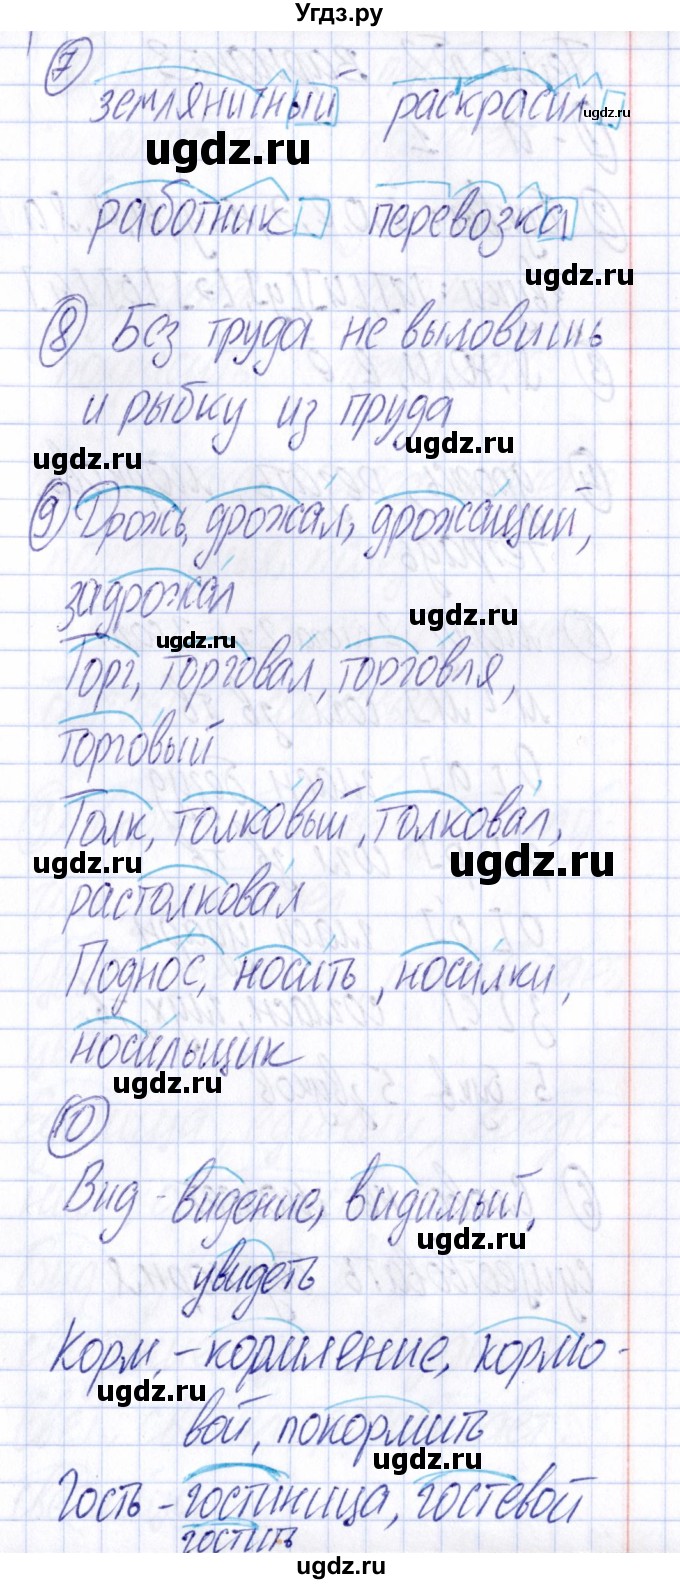 Угдз.ру
7 земляничный раскрасил
ugdz.ru
ugdz.ru
работник перевозка
ugdz.ru
8 Без труда не выловишь
и рыбку из пруда
ugdz.ru
ugdz.ru
9 Дрожь, дрожал, дрожащий,
задрожал
ugdz.ru
ugdz.ru
Торг, торговал, торговля,
торговый
Толк, толковый, толковал,
ugdz.ru
ugdz.ru
растолковал
Поднос, носить, носилки,
носильщик
ugdz.ru
10
Вид - видение, видимый,
ugdz.ru
увидеть
Корм, - кормление, кормо-
ugdz.ru
вой, покормить
ugdz.ru
Гость - гостиница, гостевой
гостить
ugdz.ru